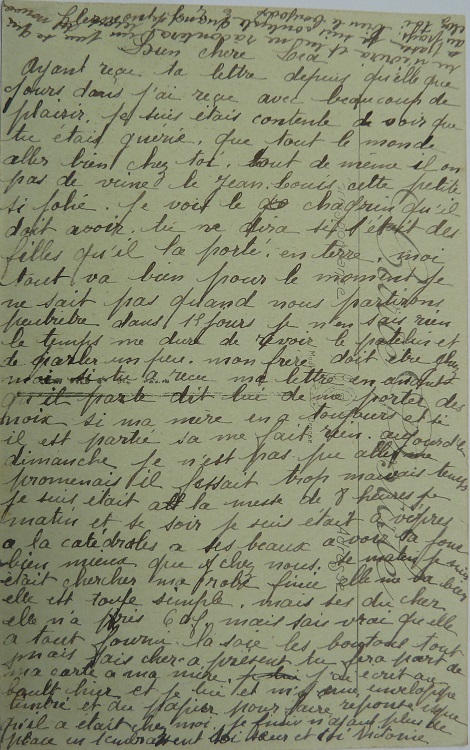 Bien chere
Ayant reçu ta lettre depuis quelle que
jours dans j'ai reçue avec beaucoup de
plaisir. je suis étais contente de voir que
tu étais guerie. que tout le monde
aller bien chez toi. tout de meme il on
pas de veine le Jean. Louis cette petite
si jolie. je vois le chagrin qu'il
doit avoir. tu me dira si s'était des
filles qu'il la porté. en terre. moi
tout va bien pour le moment je
ne sait pas quand nous partirons
peutretre dans 15 jours je n'en sais rien
le temps me dure de revoir le patelin et
de parler un peu. mon frère doit être chez
moi si tu a recu ma lettre en
qu'il parte dit lui de me porter des
noix si ma mère en a toujours et si
il est partie sa me fait rien. aujourd'hui
dimanche je n'est pas pue aller me
promenais il fessait trop mauvais temps
je suis était a la messe de 8 heures se
matin et se soir je suis était a vêpres
a la catédrales a ses beaux a voir sa joue
bien mieux que chez nous. se matin je suis
était chercher ma robe finie elle me va bien
elle est toute simple. mais ses du cher
elle m'a pris 60f, mais sais vrai quelle
a tout fourni la soie les boutons tout
mais sais cher. a présent tu fera part de
ma carte a ma mère. j'ai ecrit au
hier et je lui et mis une enveloppe
timbré et du papier pour faire reponse
qu'il a était chez moi. je finis n'ayant plus de
place en t'embrassent toi sœur et